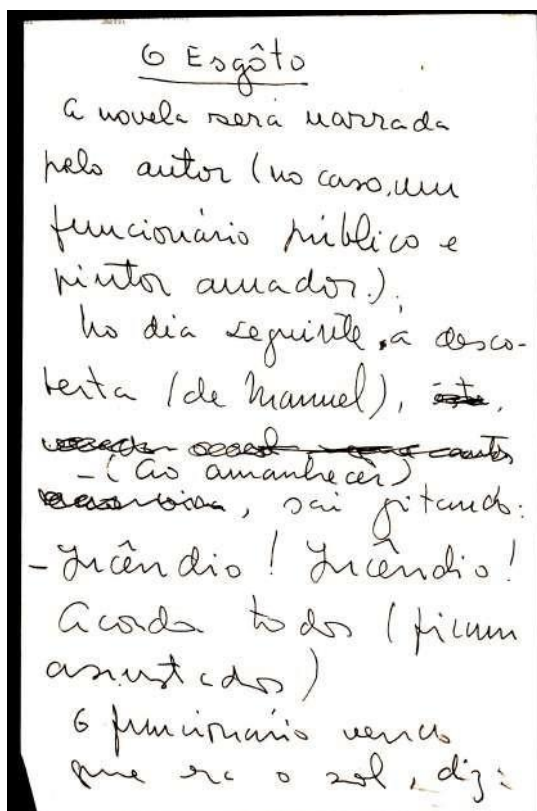 O Esgôto
A novela será narrada
pelo autor (no caso, um
funcionário público e
pintor amador.).
No dia seguinte, à desco-
berta (de Manuel),
- (Ao amanhecer)
, sai gritando:
- Incêndio! Incêndio!
Acorda todos (ficam
assustados)
O funcionário vendo
que era o sol, diz: